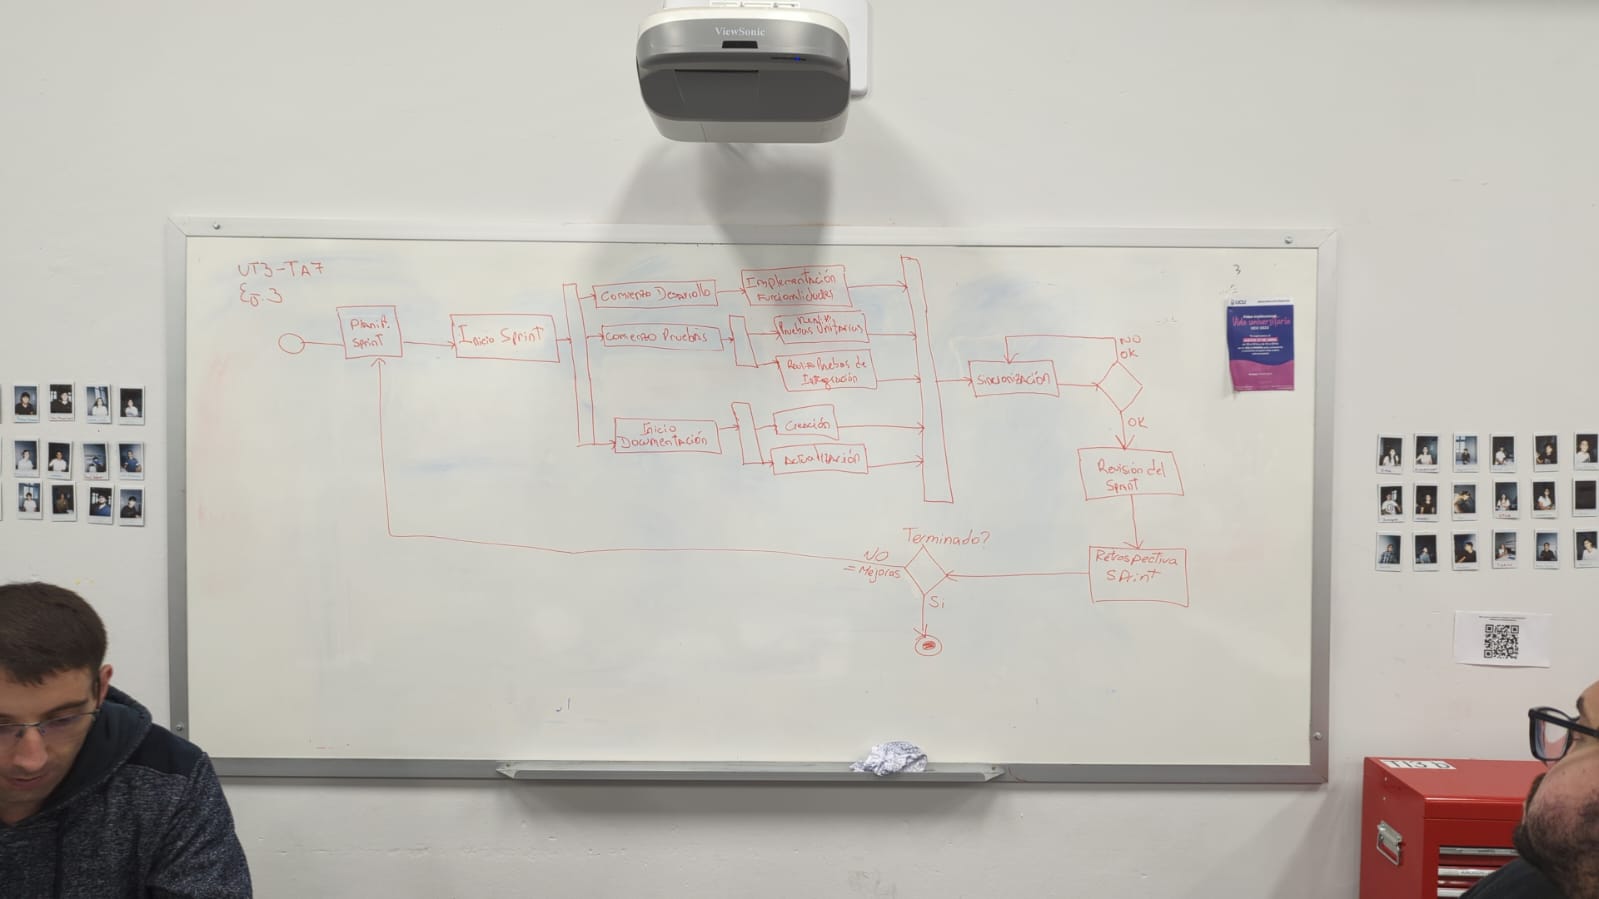 ViewSonic
UT3-TA7
Ej.3
Planif.
Sprint
Inicio Sprint
Comienzo Desarrollo
Implementación
Funcionalidades
Comienzo Pruebas
Pruebas Unitarias
Pruebas de
Integración
Inicio
Documentación
Creación
Actualización
Sincronización
NO
OK
OK
Revisión del
Sprint
Retrospectiva
Sprint
Terminado?
NO
=Mejoras
Si
3
UCU
Vida universitaria